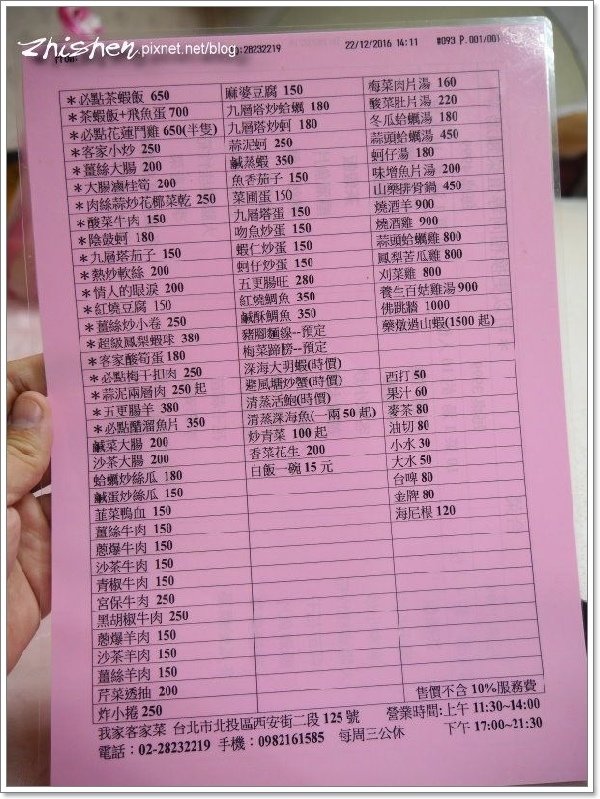 zhishen.pixnet.net/blog
:28232219 22/12/2016 14:11 #093 P.001/001
＊必點茶蝦飯 650
＊茶蝦飯+飛魚蛋700
＊必點花蓮鬥雞 650(半隻)
＊客家小炒 250
＊薑絲大腸 200
＊大腸滷桂筍 200
＊肉絲蒜炒花椰菜乾 250
＊酸菜牛肉 150
＊陰鼓蚵 180
＊九層塔茄子 150
＊熱炒軟絲 200
＊情人的眼淚 200
＊紅燒豆腐 150
＊薑絲炒小卷 250
＊超級鳳梨蝦球 380
＊客家酸筍蛋180
＊必點梅干扣肉 250
＊蒜泥兩層肉 250 起
＊五更腸羊 380
＊必點醋溜魚片 350
鹹菜大腸 200
沙茶大腸 200
蛤蠣炒絲瓜 180
鹹蛋炒絲瓜 150
韮菜鴨血 150
薑絲牛肉 150
蔥爆牛肉 150
沙茶牛肉 150
青椒牛肉 150
宮保牛肉 250
黑胡椒牛肉 250
蔥爆羊肉 150
沙茶羊肉 150
薑絲羊肉 150
芹菜透抽 200
炸小捲 250
麻婆豆腐 150
九層塔炒蛤蠣 180
九層塔炒蚵 180
蒜泥蚵 250
鹹蒸蝦 350
魚香茄子 150
菜圃蛋 150
九層塔蛋 150
吻魚炒蛋 150
蝦仁炒蛋 150
蚵仔炒蛋 150
五更腸旺 280
紅燒鯛魚 350
鹹酥鯛魚 350
豬腳麵線--預定
梅菜蹄膀--預定
深海大明蝦(時價)
避風塘炒蟹(時價)
清蒸活鮑(時價)
清蒸深海魚(一兩 50起)
炒青菜 100 起
香菜花生 200
白飯一碗 15 元
梅菜肉片湯 160
酸菜肚片湯 220
冬瓜蛤蠣湯 180
蒜頭蛤蠣湯 450
蚵仔湯 180
味增魚片湯 200
山藥排骨鍋 450
燒酒羊 900
燒酒雞 900
蒜頭蛤蠣雞 800
鳳梨苦瓜雞 800
刈菜雞 800
養生百菇雞湯 900
佛跳牆 1000
藥燉過山蝦(1500 起)
西打 50
果汁 60
麥茶 80
油切 80
小水 30
大水 50
台啤 80
金牌 80
海尼根 120
售價不含 10%服務費
我家客家菜 台北市北投區西安街二段 125 號 營業時間:上午 11:30~14:00
電話：02-28232219 手機：0982161585 每周三公休 下午 17:00~21:30